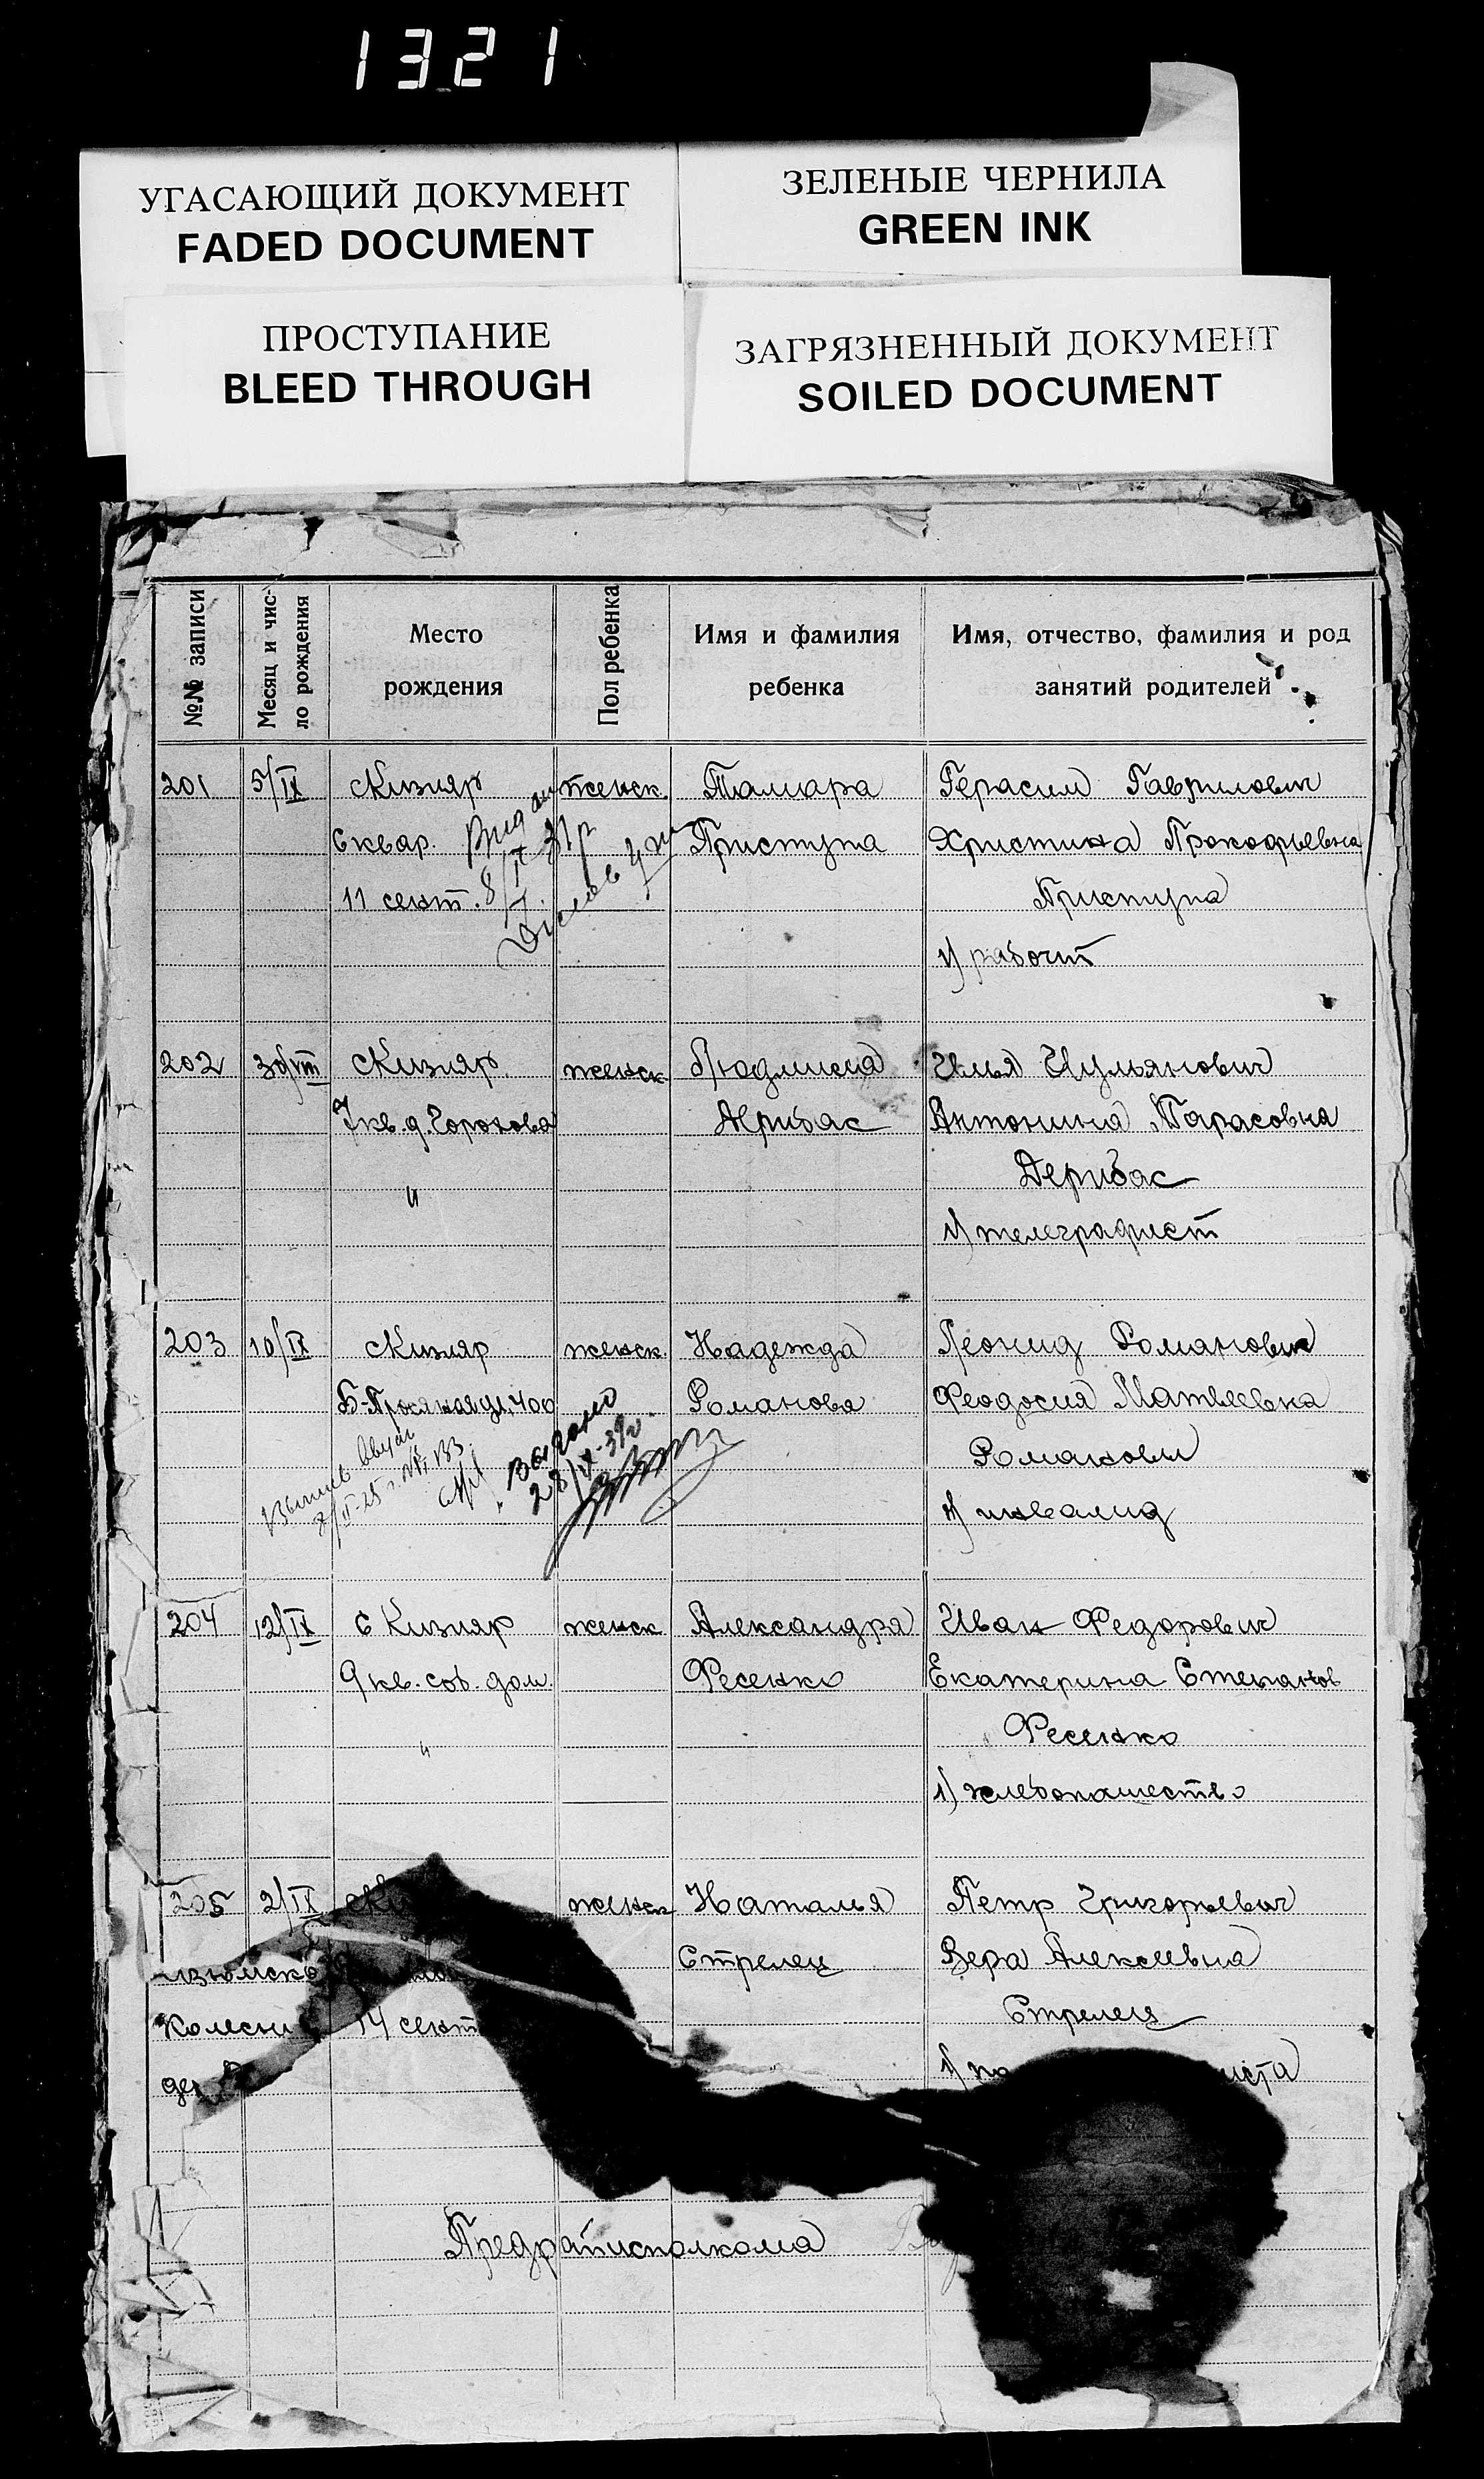 1321
УГАСАЮЩИЙ ДОКУМЕНТ
FADED DOCUMENT
ЗЕЛЕНЫЕ ЧЕРНИЛА
GREEN INK
ПРОСТУПАНИЕ
BLEED THROUGH
ЗАГРЯЗНЕННЫЙ ДОКУМЕНТ
SOILED DOCUMENT
№№ записи
Месяц и чис-
ло рождения
Место
рождения
Пол ребенка
Имя и фамилия
ребенка
Имя, отчество, фамилия и род
занятий родителей
201 5/IX с Кизияр женск. Тамара Герасим Гаврилович
6 квар. Приступа Христина Прокофьевна
11 сект. Приступа
1) рабочий
202 30/VIII с Кизияр женск Людмила Илья Иульянович
7 кв. д. Горохова Дерибас Антонина Тарасовна
" Дерибас
1) телеграфист
203 10/IX с Кизияр женск. Надежда Леонид Романович
Б-Просяная ул, 400 Романова Феодосия Матвеевна
Выдано Романовы
28/IX-39г. 1) инвалид
204 12/IX с Кизияр женск Александра Иван Федорович
9 кв. соб. дом. Фесенко Екатерина Степанов
" Фесенко
1) хлебопашество
205 2/IX женск Наталья Петр Григорьевич
Стрелец Вера Алексеевна
14 сект Стрелец
1)
Предрайисполкома